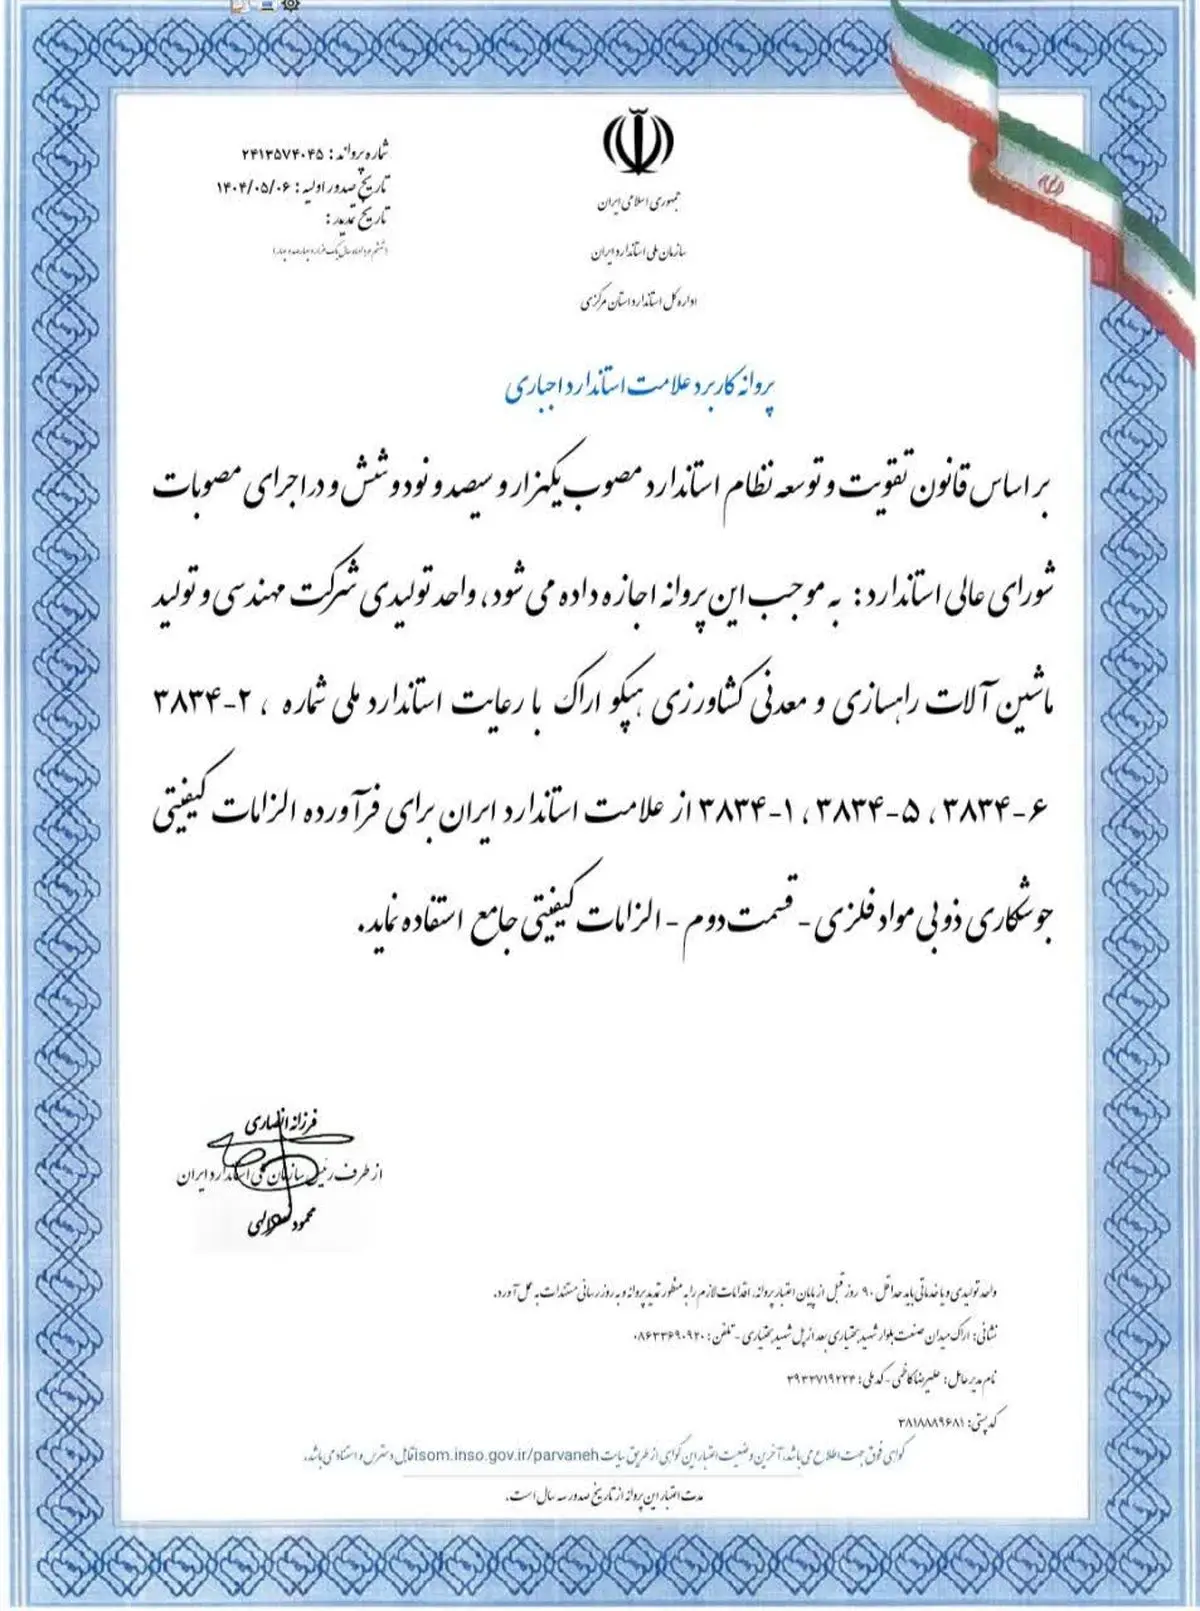 جمهوری اسلامی ایران
سازمان ملی استاندارد ایران
اداره کل استاندارد استان مرکزی
شماره پروانه: ۲۴۱۳۵۷۴۰۴۵
تاریخ صدور اولیه: ۱۴۰۴/۰۵/۰۶
تاریخ تمدید:
(ششم مرداد ماه سال یک هزار و چهارصد و چهار)
پروانه کاربرد علامت استاندارد اجباری
بر اساس قانون تقویت و توسعه نظام استاندارد مصوب یکهزار و سیصد و نود و شش و در اجرای مصوبات
شورای عالی استاندارد: به موجب این پروانه اجازه داده می شود، واحد تولیدی شرکت مهندسی و تولید
ماشین آلات راهسازی و معدنی کشاورزی هپکو اراک با رعایت استاندارد ملی شماره ، ۲-۳۸۳۴
۳۸۳۴-۶ ، ۳۸۳۴-۵ ، ۳۸۳۴-۱ از علامت استاندارد ایران برای فرآورده الزامات کیفیتی
جوشکاری ذوبی مواد فلزی - قسمت دوم - الزامات کیفیتی جامع استفاده نماید.
فرزانه انصاری
از طرف رئیس سازمان ملی استاندارد ایران
محمود
واحد تولیدی و یا خدماتی باید حداقل ۹۰ روز قبل از پایان اعتبار پروانه، اقدامات لازم را به منظور تمدید پروانه و به روز رسانی مستندات به عمل آورد.
نشانی: اراک میدان صنعت بلوار شهید بختیاری بعد از پل شهید بختیاری - تلفن: ۰۸۶۳۳۶۹۰۹۲۰
نام مدیر عامل: علیرضا کاظمی - کد ملی: ۳۹۳۳۷۱۹۲۲۴
کد پستی: ۳۸۱۸۸۸۹۶۸۱
گواهی فوق جهت اطلاع می باشد، آخرین وضعیت اعتبار این گواهی از طریق سایت isom.inso.gov.ir/parvaneh قابل دسترس و استناد می باشد.
مدت اعتبار این پروانه از تاریخ صدور سه سال است.